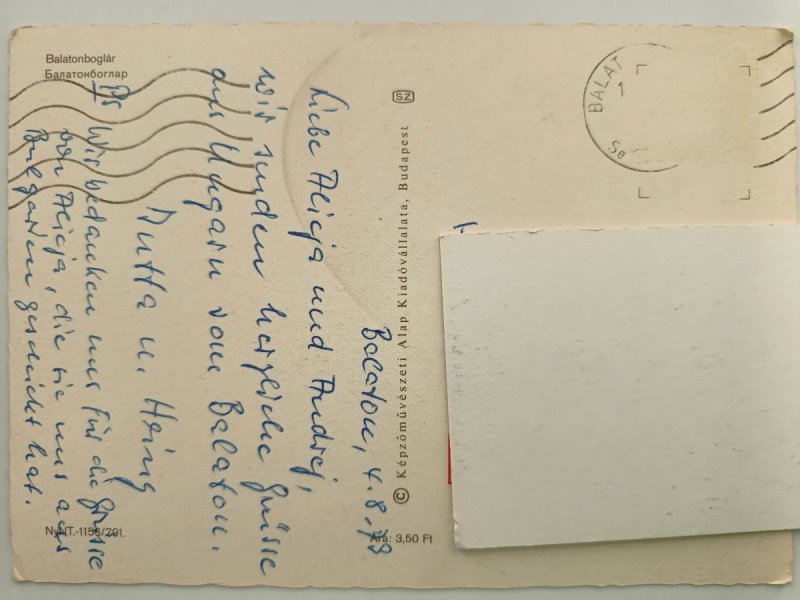 Balatonboglár
Балатонбоглар
Balaton, 4.8.73
Liebe Alicja und Andrej,
wir senden herzliche Grüsse
aus Ungarn vom Balaton.
Jutta u. Heinz
Ps Wir bedanken uns für die Grüsse
von Alicja, die sie uns aus
Bulgarien geschickt hat.
NyNT.-1156/291.
Ára: 3,50 Ft
© Képzőművészeti Alap Kiadóvállalata, Budapest
SZ
BALAT
1
Se